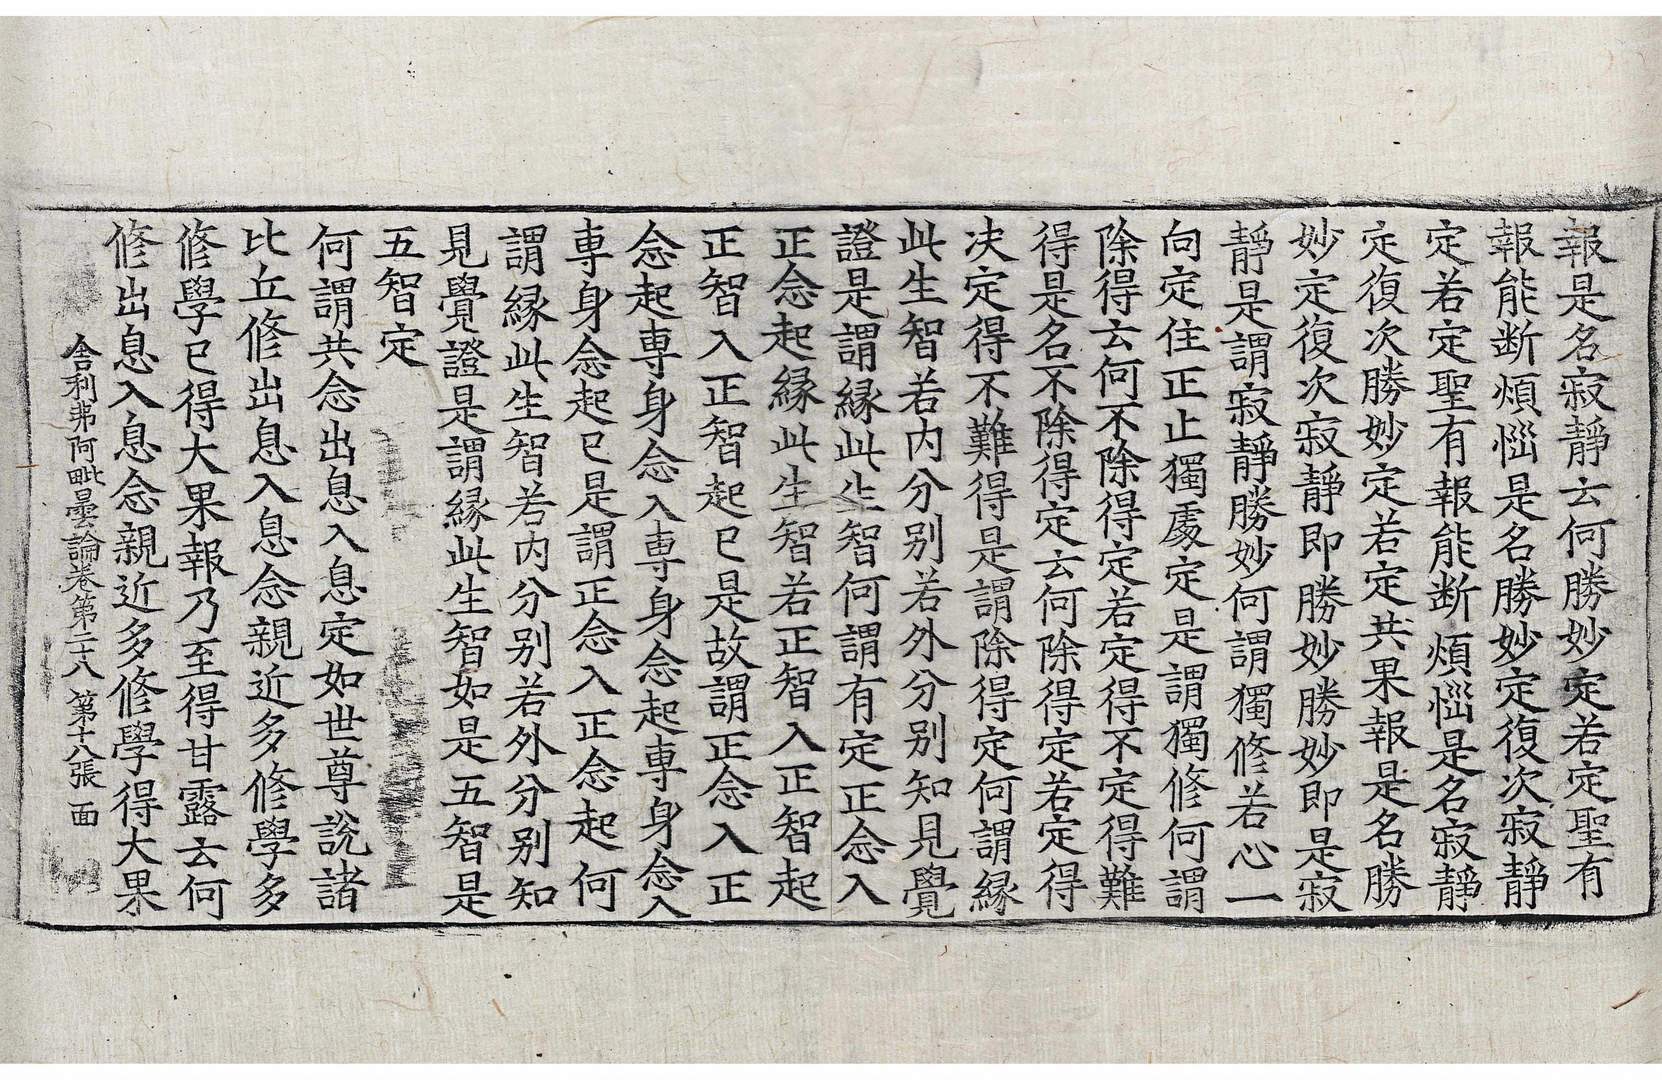 報是名寂靜云何勝妙定若定聖有
報能断煩惱是名勝妙定復次寂靜
定若定聖有報能断煩惱是名寂靜
定復次勝妙定若定共果報是名勝
妙定復次寂靜即勝妙勝妙即是寂
靜是謂寂靜勝妙何謂獨修若心一
向定住正止獨處定是謂獨修何謂
除得云何不除得定若定得不定得難
得是名不除得定云何除得定若定得
决定得不難得是謂除得定何謂緣
此生智若内分别若外分别知見覺
證是謂緣此生智何謂有定正念入
正念起緣此生智若正智入正智起
正智入正智起已是故謂正念入正
念起專身念入專身念起專身念入
專身念起已是謂正念入正念起何
謂緣此生智若内分别若外分别知
見覺證是謂緣此生智如是五智是
五智定
何謂共念出息入息定如世尊說諸
比丘修出息入息念親近多修學多
修學已得大果報乃至得甘露云何
修出息入息念親近多修學得大果
舍利弗阿毗曇論卷第二十八 第十八張 面